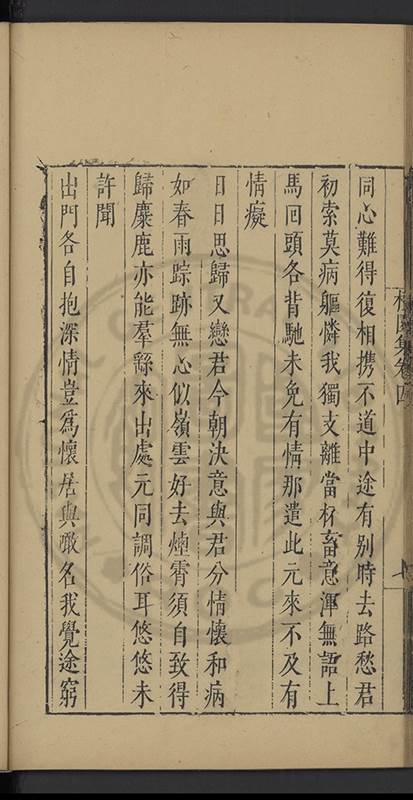 同心難得復相携不道中途有别時去路愁君
初索莫病軀憐我獨支離當杯蓄意渾無語上
馬回頭各背馳未免有情那遣此元來不及有
情癡
日日思歸又戀君今朝決意與君分情懷和病
如春雨踪跡無心似嶺雲好去煙霄須自致得
歸麋鹿亦能羣繇來出處元同調俗耳悠悠未
許聞
出門各自抱深情豈為懷居與噉名我覺途窮
集卷四